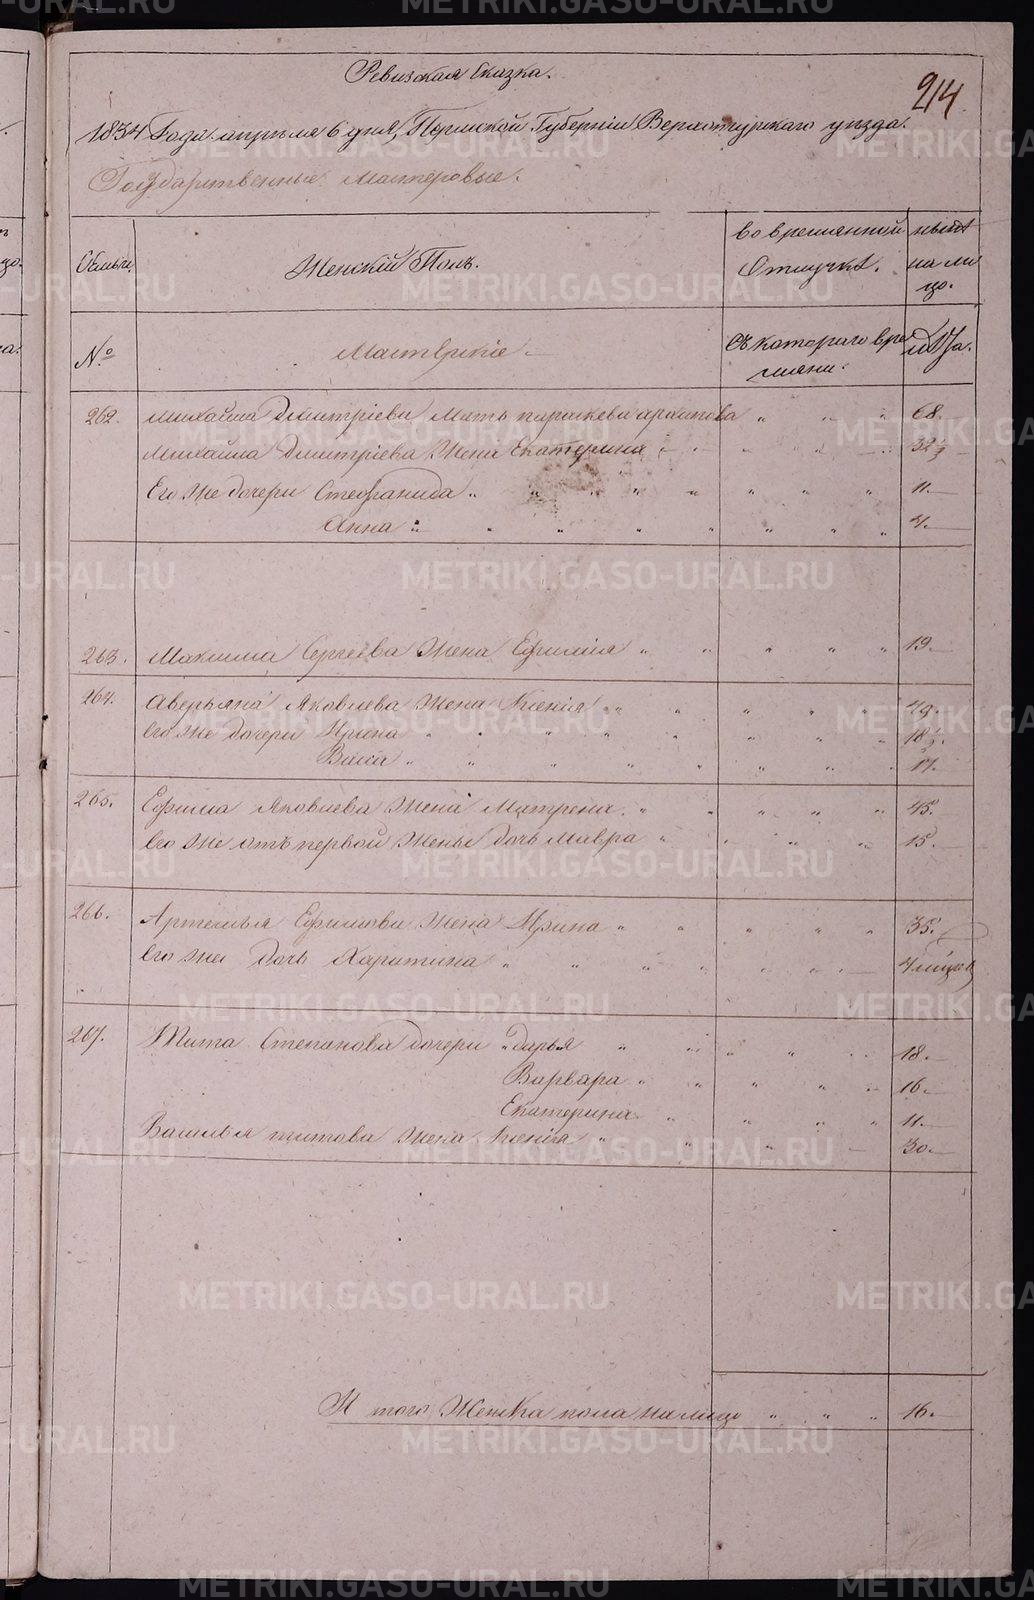 214
Ревизская Сказка.
1834 Года апреля 6 дня, Пермской Губернии Верхотурскаго уезда.
Государственные мастеровые.
Семьи, Женскій Полъ. во временной Отлучке. ныне на лицо.
№ Мастерскіе съ котораго времяни. Лета.
262. Михайла Дмитріева Мать парасковья архипова " " " 68.
Михайла Дмитріева Жена Екатерина " " " 32½
Его же дочери Стефанида " " " " " " " 11.
Анна " " " " " " " 4.
263. Максима Сергеева Жена Ефимия " " " " " 19.
264. Аверьяна Яковлева Жена Ксенія " " " " " 49.
Его же дочери Ирина " " " " " " " 18½.
Васса " " " " " " 17.
265. Ефима Яковлева Жена Матрена " " " " " 45.
Его же отъ первой Жены дочь Мавра " " " " 15.
266. Артемья Ефимова Жена Ирина " " " " " 35.
Его же дочь Харитина " " " " " " 4 месяц
267. Тита Степанова дочери Дарья " " " " 18.
Варвара " " " " " 16.
Екатерина " " " " 11.
Василья титова Жена Ксенія " " " 30.
И того Женска пола на лицо " " " 16.
METRIKI.GASO-URAL.RU